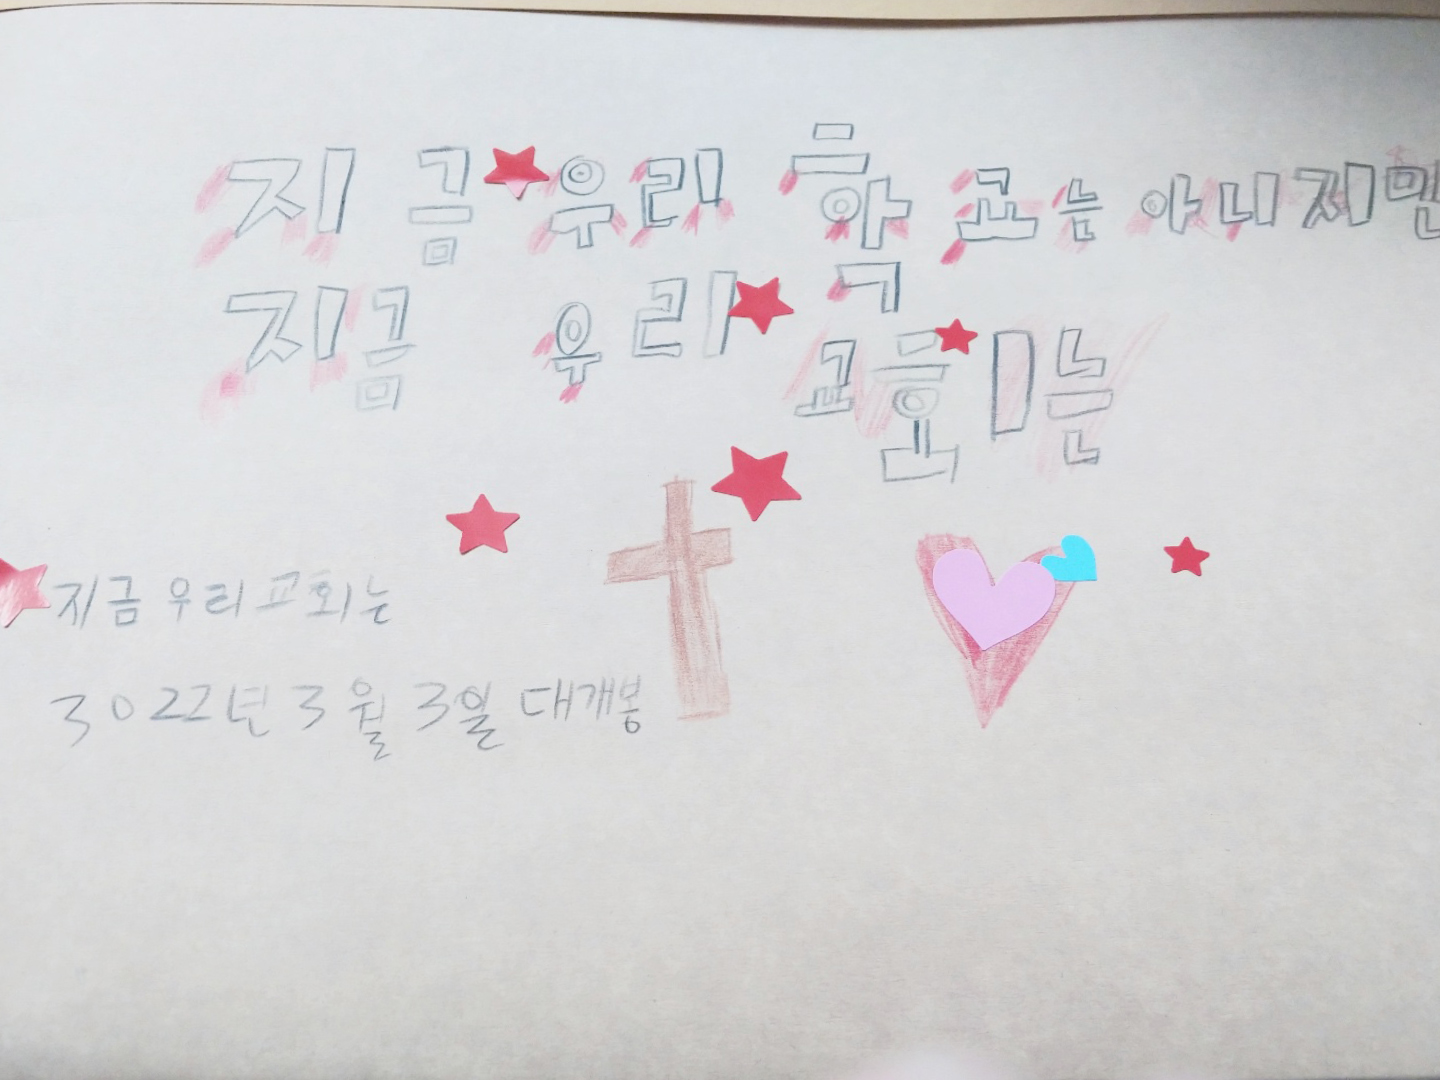 지금 우리 학교는 아니지만
지금 우리 교회는
지금 우리 교회는
3022년 3월 3일 대개봉